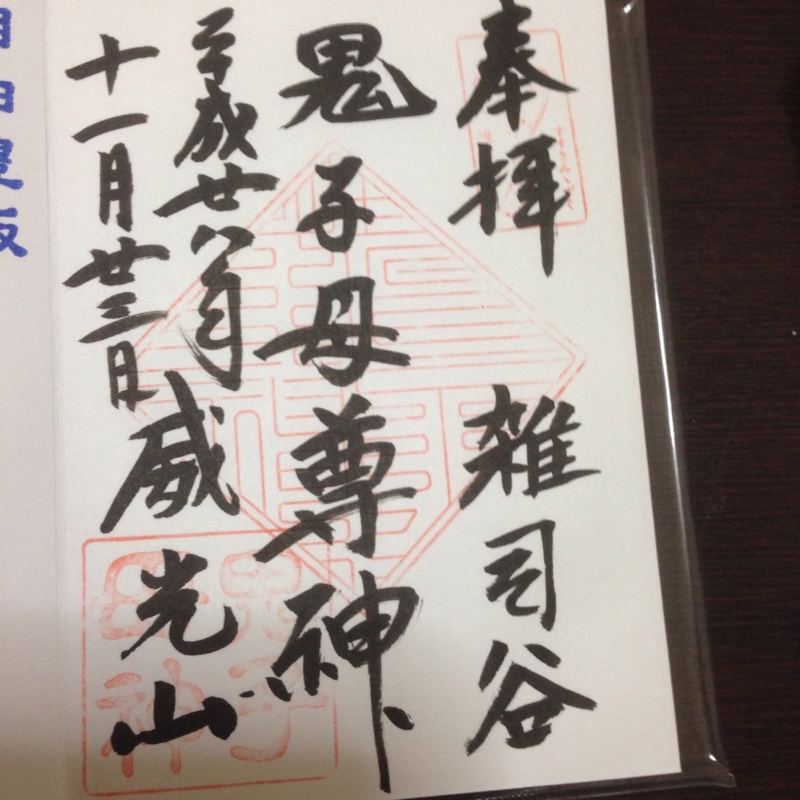 奉拝 雑司谷
鬼子母尊神
平成廿八年
十一月廿三日
威光山
鬼子
母神